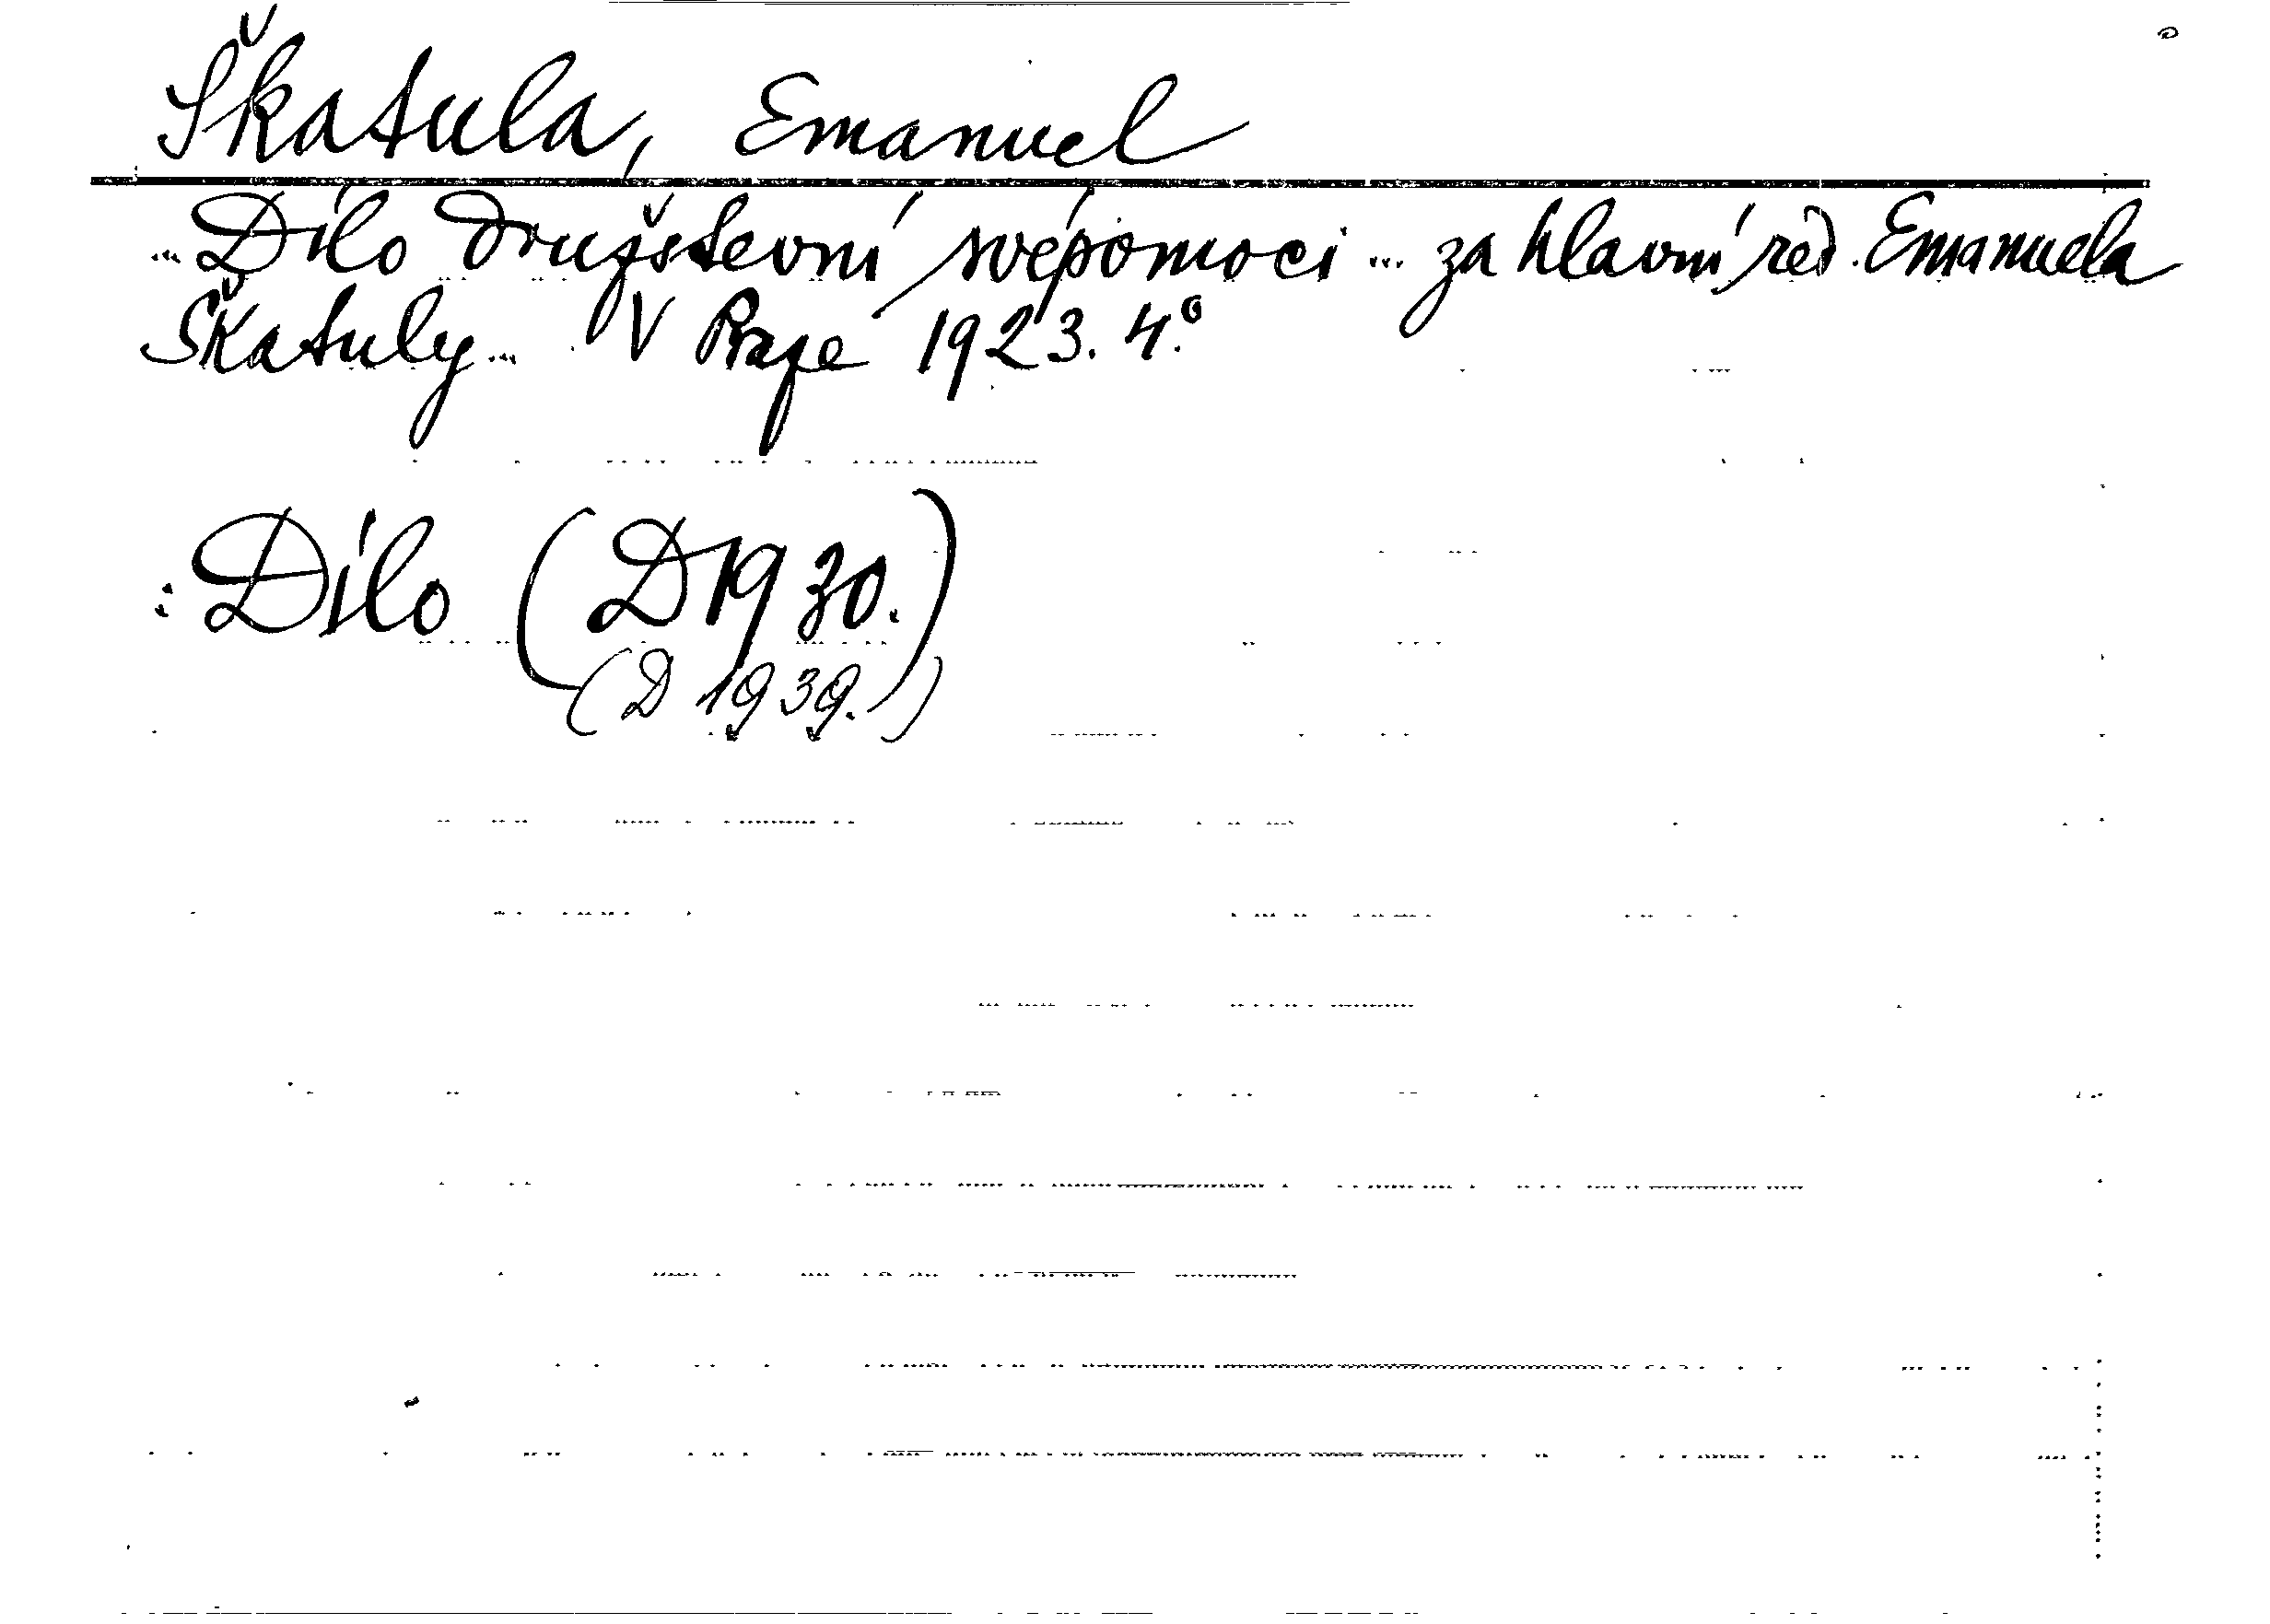 Škatula, Emanuel
... Dílo družstevní svépomoci ... za hlavní red. Emanuela
Škatuly ... V Praze 1923. 4.°
: Dílo (D 1930.)
(D 1939.)